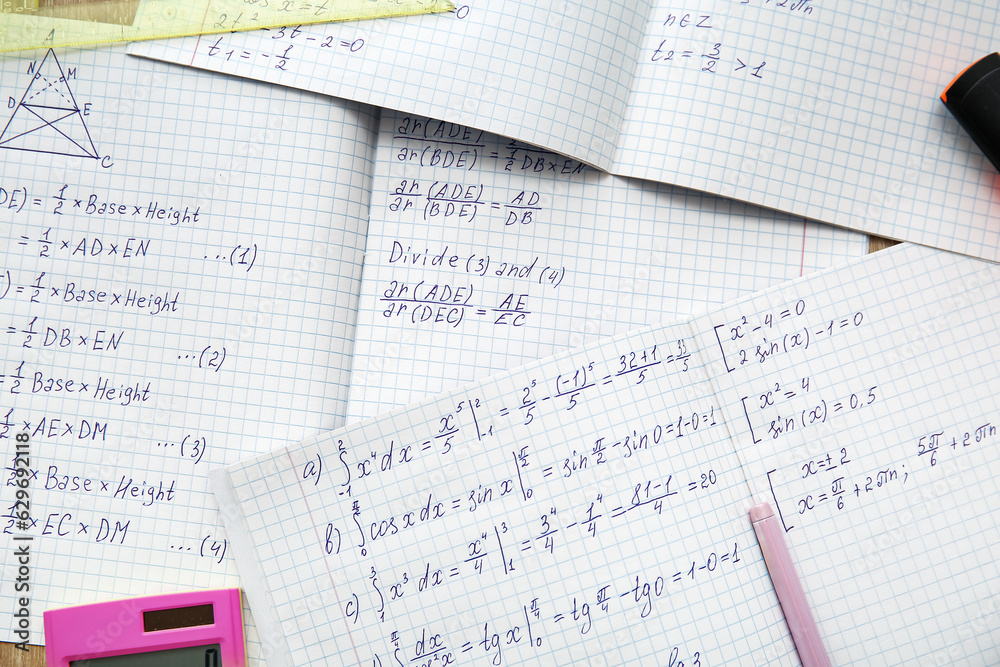 cos x = t
2t² - 3t - 2 = 0
t₁ = -1/2
+ 2πn
n ∈ Z
t₂ = 3/2 > 1
A
N
M
D
E
C
DE) = 1/2 × Base × Height
= 1/2 × AD × EN ...(1)
) = 1/2 × Base × Height
= 1/2 DB × EN ...(2)
= 1/2 Base × Height
1/2 × AE × DM ...(3)
1/2 × Base × Height
1/2 × EC × DM ...(4)
ar(ADE)/ar(BDE) = 1/2 DB × EN
ar(ADE)/ar(BDE) = AD/DB
Divide (3) and (4)
ar(ADE)/ar(DEC) = AE/EC
a) ∫₋₁² x⁴ dx = x⁵/5 |₋₁² = 2⁵/5 - (-1)⁵/5 = 32+1/5 = 33/5
b) ∫₀^(π/2) cos x dx = sin x |₀^(π/2) = sin π/2 - sin 0 = 1-0 = 1
c) ∫₁³ x³ dx = x⁴/4 |₁³ = 3⁴/4 - 1⁴/4 = 81-1/4 = 20
∫^(π/4) dx/cos²x = tg x |₀^(π/4) = tg π/4 - tg 0 = 1-0 = 1
[ x² - 4 = 0
2 sin(x) - 1 = 0
[ x² = 4
sin(x) = 0,5
[ x = ± 2
x = π/6 + 2πn; 5π/6 + 2πn
Adobe Stock | #629692118
Adobe Stock